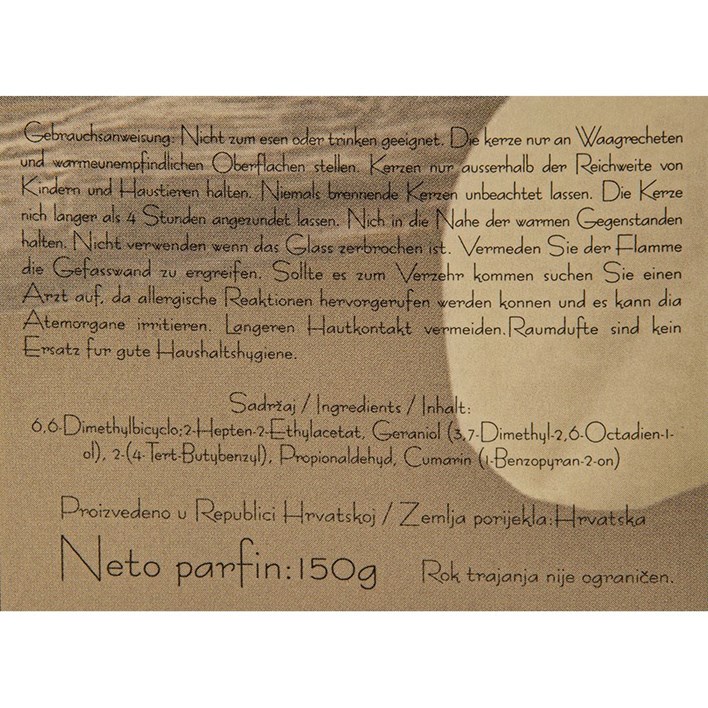 Gebrauchsanweisung: Nicht zum esen oder trinken geeignet. Die kerze nur an Waagrecheten
und warmeunempfindlichen Oberflachen stellen. Kerzen nur ausserhalb der Reichweite von
Kindern und Haustieren halten. Niemals brennende Kerzen unbeachtet lassen. Die Kerze
nich langer als 4 Stunden angezundet lassen. Nich in die Nahe der warmen Gegenstanden
halten. Nicht verwenden wenn das Glass zerbrochen ist. Vermeden Sie der Flamme
die Gefasswand zu ergreifen. Sollte es zum Verzehr kommen suchen Sie einen
Arzt auf, da allergische Reaktionen hervorgerufen werden konnen und es kann dia
Atemorgane irritieren. Langeren Hautkontakt vermeiden.Raumdufte sind kein
Ersatz fur gute Haushaltshygiene.
Sadržaj / Ingredients / Inhalt:
6,6-Dimethylbicyclo;2-Hepten-2-Ethylacetat, Geraniol (3,7-Dimethyl-2,6-Octadien-1-
ol), 2-(4-Tert-Butybenzyl), Propionaldehyd, Cumarin (1-Benzopyran-2-on)
Proizvedeno u Republici Hrvatskoj / Zemlja porijekla:Hrvatska
Neto parfin:150g
Rok trajanja nije ograničen.